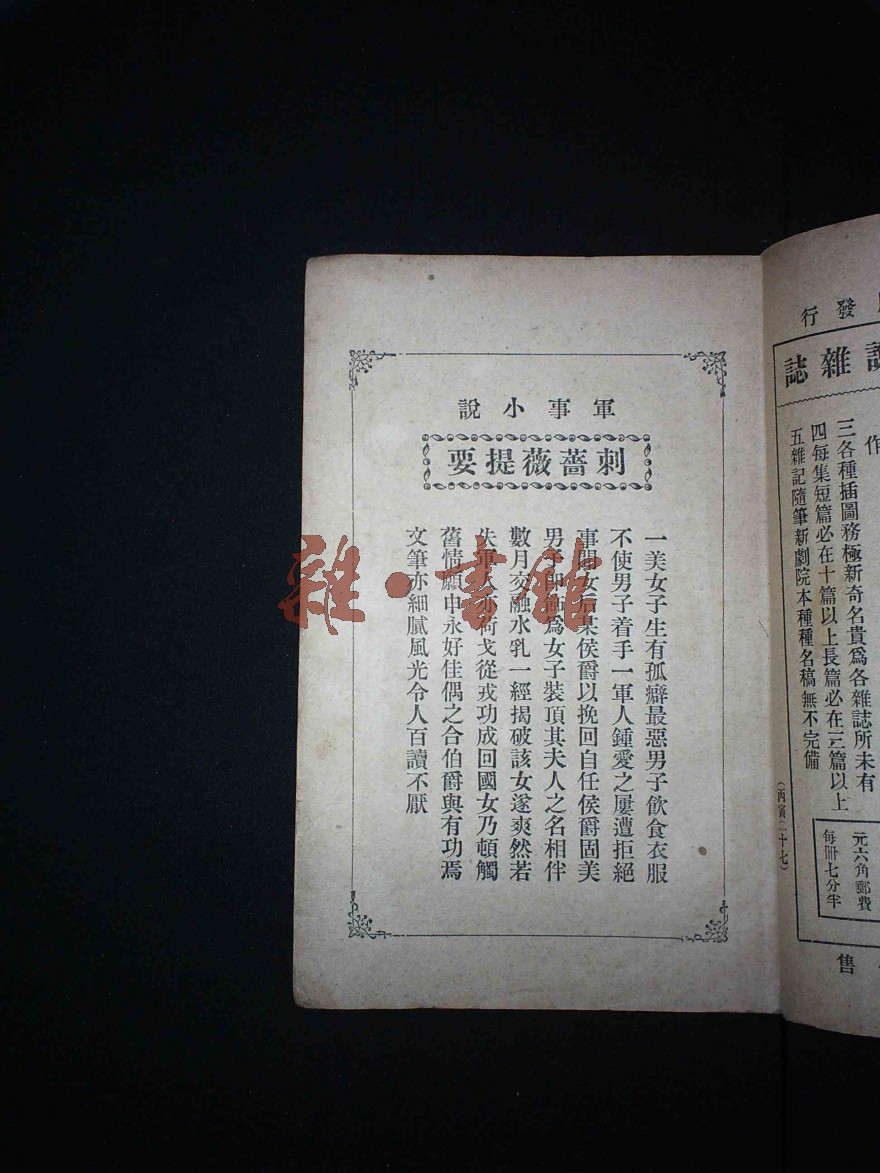 軍事小說
刺薔薇提要
一美女子生有孤癖最惡男子飲食衣服
不使男子着手一軍人鍾愛之屢遭拒絕
事聞女后某侯爵以挽回自任侯爵固美
男子卽飾爲女子裝頂其夫人之名相伴
數月交融水乳一經揭破該女遂爽然若
失軍人亦荷戈從戎功成回國女乃頓觸
舊情願申永好佳偶之合伯爵與有功焉
文筆亦細膩風光令人百讀不厭
雜·書館
發行
雜誌
作
三各種插圖務極新奇名貴爲各雜誌所未有
四每集短篇必在十篇以上長篇必在三篇以上
五雜記隨筆新劇院本種種名稿無不完備
元六角郵費
每冊七分半
(丙寅二十七)
售